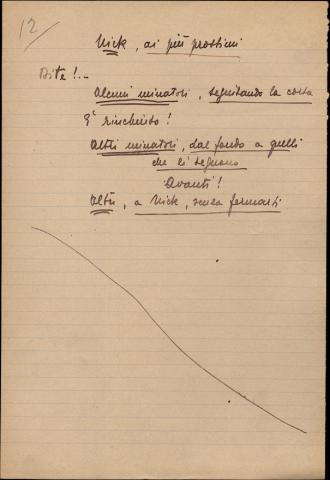 12
Nick, ai più prossimi
Dite!..
Alcuni minatori, seguitando la corsa
S'è rinchiuso!
Altri minatori, dal fondo a quelli
che li seguono
Avanti!
Altri, a Nick, senza fermarsi